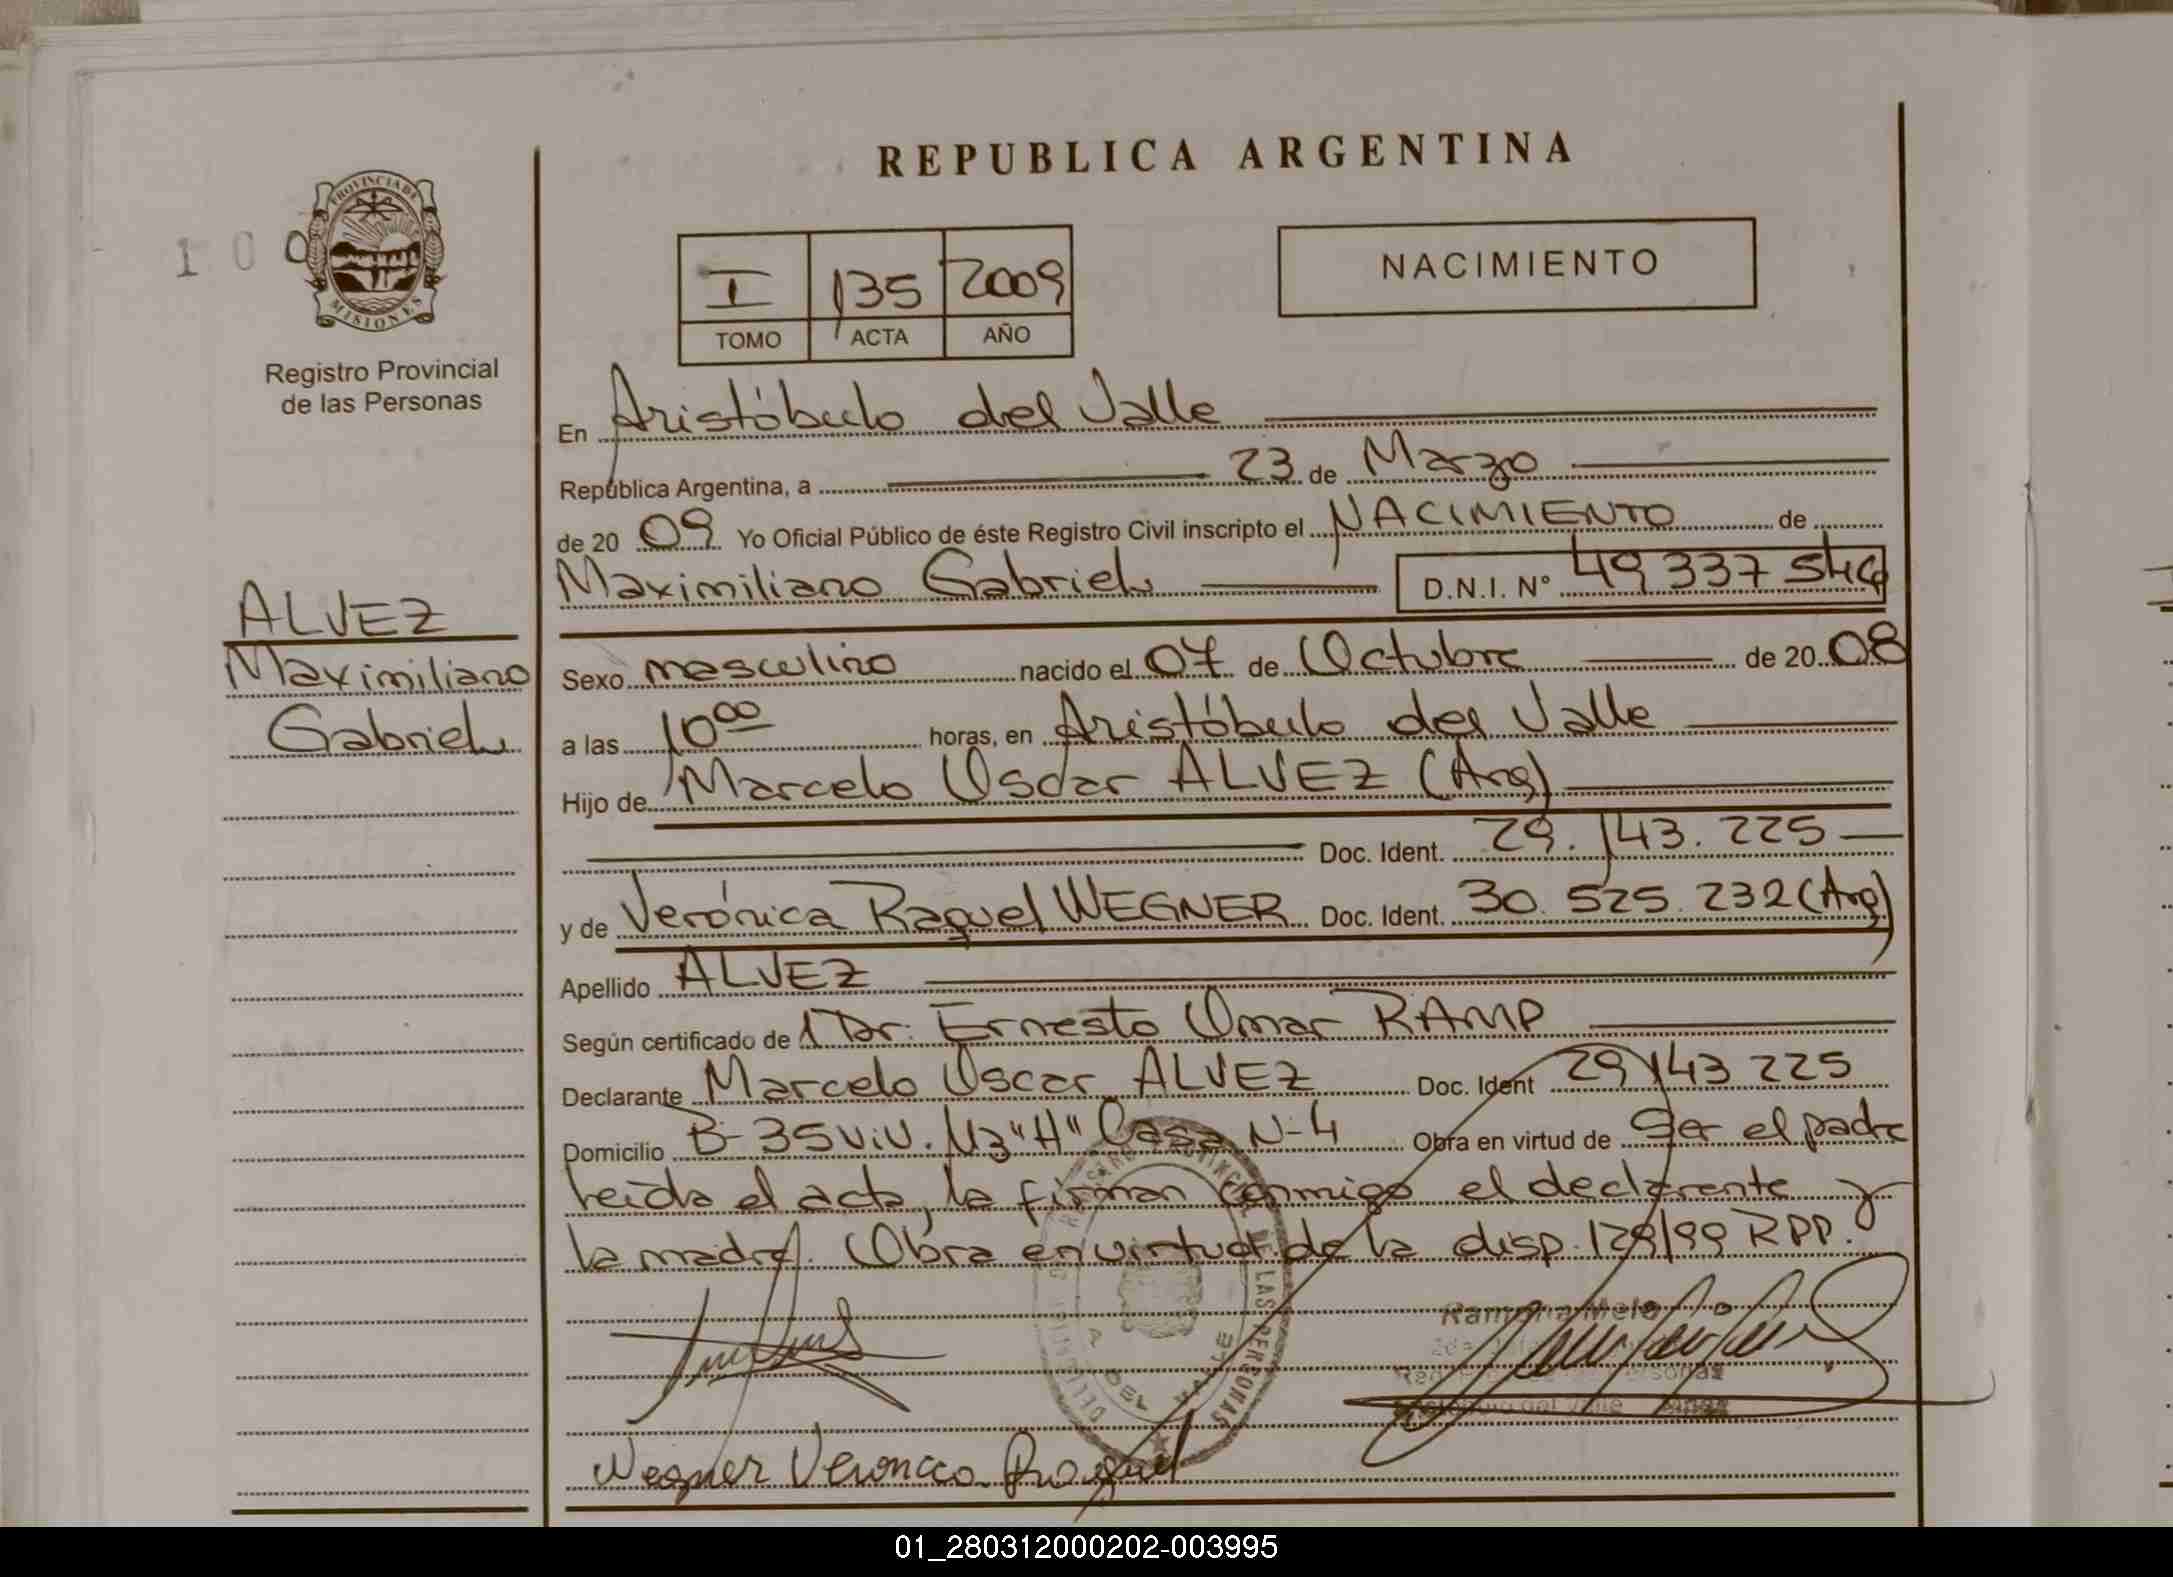 REPUBLICA ARGENTINA
100
PROVINCIA DE
MISIONES
Registro Provincial
de las Personas
I 135 2009
TOMO ACTA AÑO
NACIMIENTO
En Aristóbulo del Valle
República Argentina, a 23 de Marzo
de 20 09 Yo Oficial Público de éste Registro Civil inscripto el NACIMIENTO de
Maximiliano Gabriel D.N.I. Nº 49 337
ALVEZ
Maximiliano
Gabriel
Sexo masculino nacido el 07 de Octubre de 20 08
a las 10 00 horas, en Aristóbulo del Valle
Hijo de Marcelo Oscar ALVEZ (Arg)
Doc. Ident. 29.143.225
y de Verónica Raquel WEGNER Doc. Ident. 30.525.232 (Arg)
Apellido ALVEZ
Según certificado de Dr. Ernesto Omar RAMP
Declarante Marcelo Oscar ALVEZ Doc. Ident 29 143 225
Domicilio B- 35 viv. Mz "H" Casa N-4 Obra en virtud de Ser el padre
leída el acta, la firman conmigo el declarante y
la madre. Obra en virtud de la disp. 129/99 RPP.
REGISTRO PROVINCIAL DE LAS PERSONAS
DEL VALLE
Ramona Melo
Wegner Veronica Raquel
01_280312000202-003995